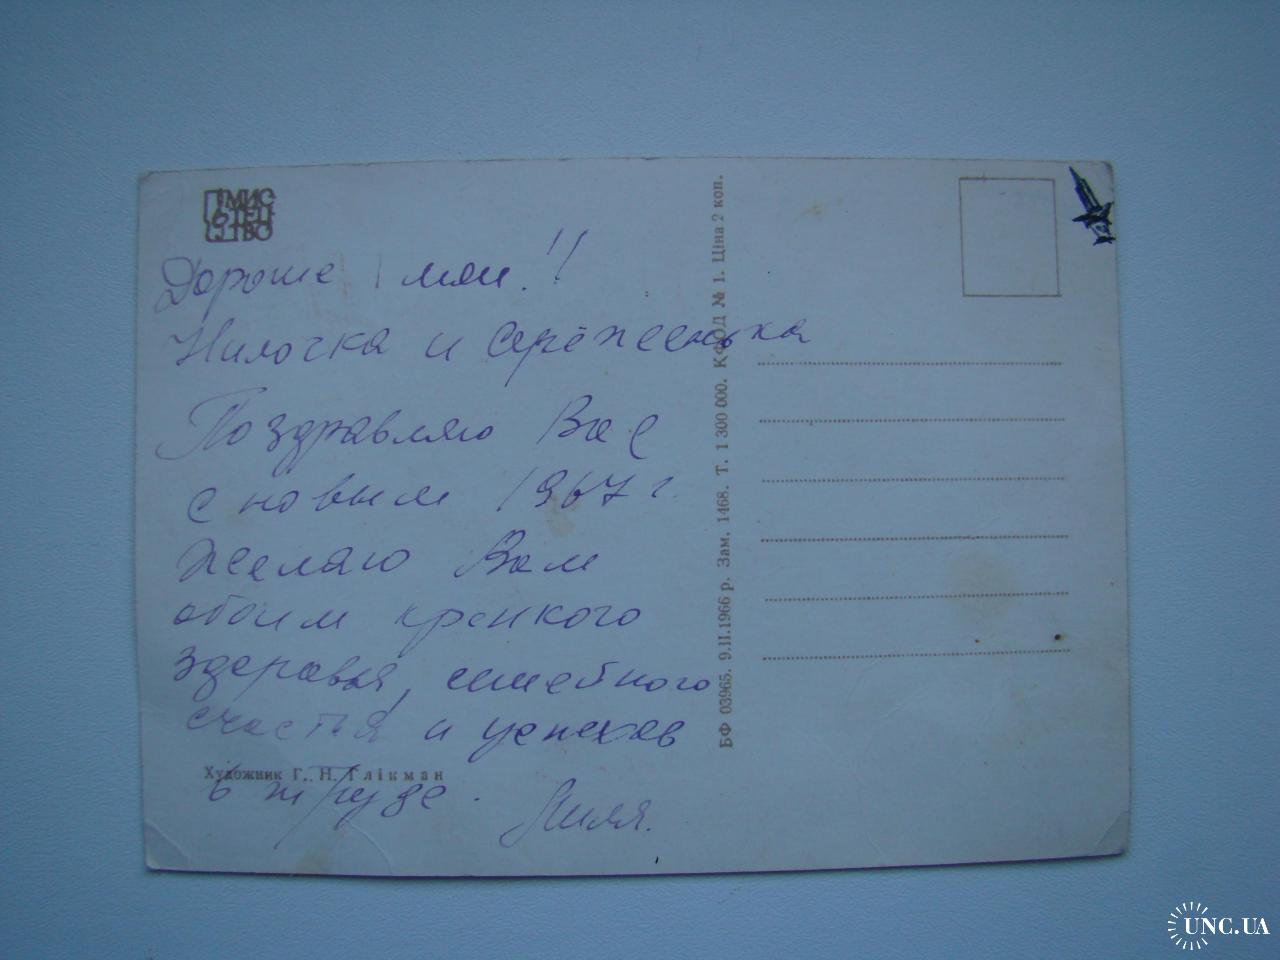 МИС
ТЕЦ
ТВО
Дорогие мои!!
Нилочка и Серёженька
Поздравляю Вас
с новым 1967 г.
Желаю Вам
обоим крепкого
здоровья, семейного
счастья и успехов
в труде. Лиля.
Художник Г. Н. Глікман
БФ 03965. 9.II.1966 р. Зам. 1468. Т. 1 300 000. КФОД № 1. Ціна 2 коп.
UNC.UA